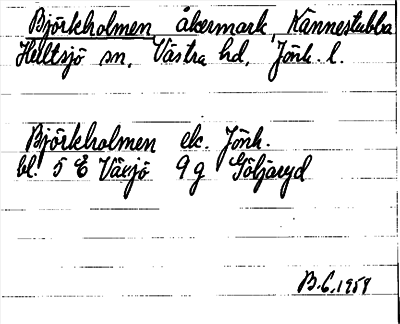 Björkholmen, åkermark, Kännestubba
Hjälsjö sn, Västra hd, Jönk. l.
Björkholmen ek. Jönk.
bl. 5 E Växjö 9 g Göljaryd
B.C. 1959